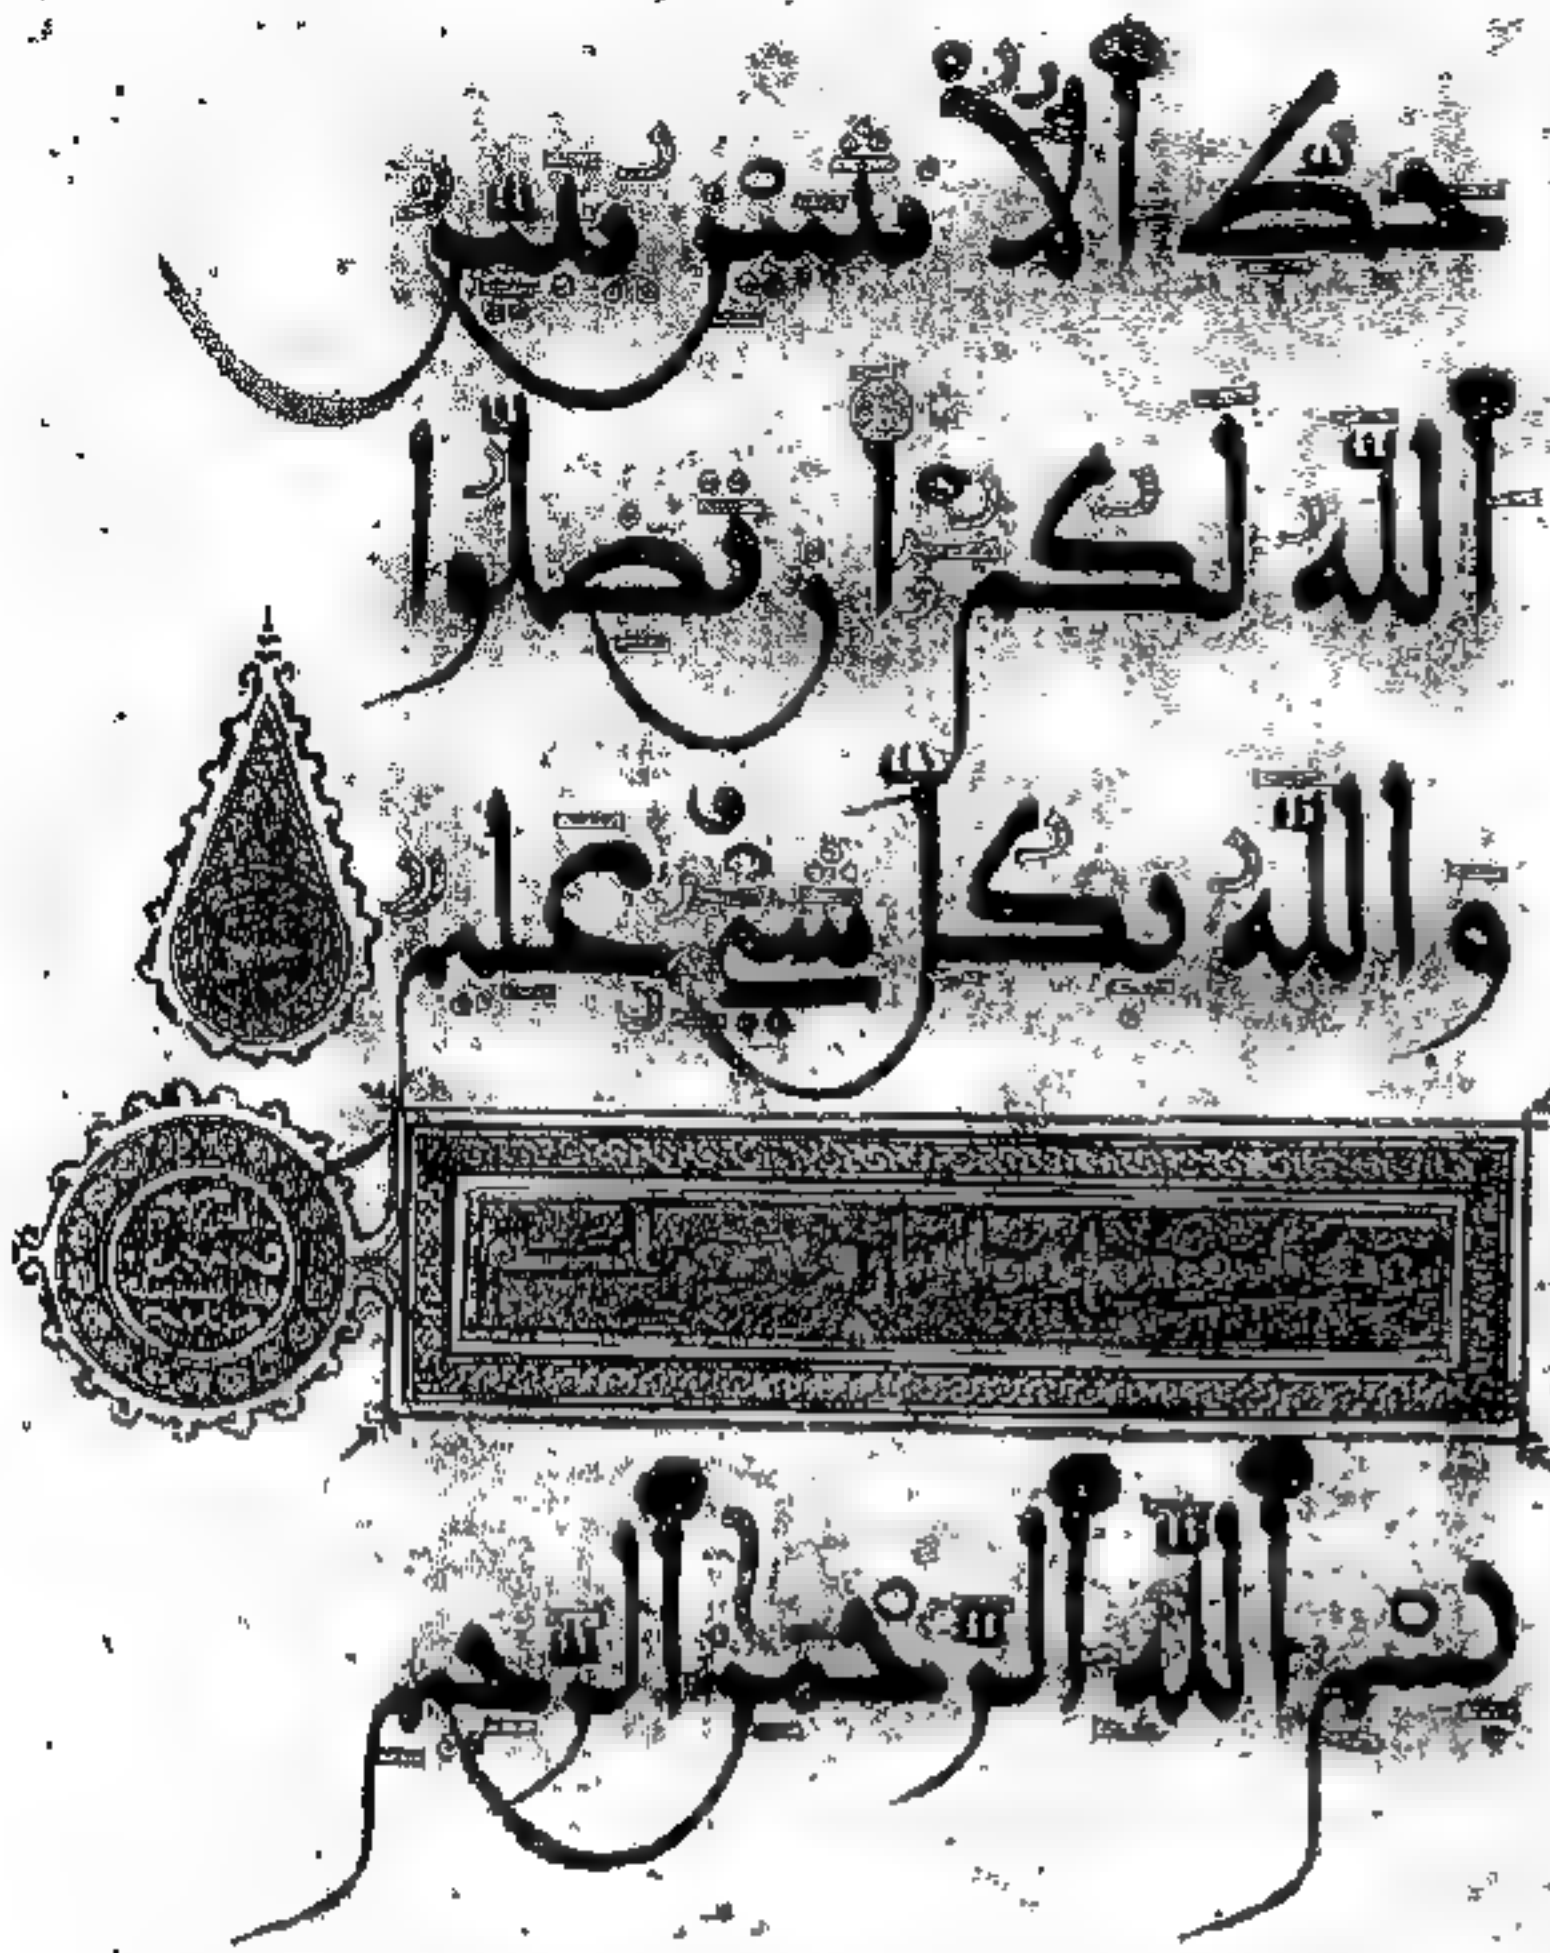 حَظِّ ٱلْأُنثَيَيْنِ يُبَيِّنُ
ٱللَّهُ لَكُمْ أَن تَضِلُّوا
وَٱللَّهُ بِكُلِّ شَيْءٍ عَلِيمٌ
بِسْمِ ٱللَّهِ ٱلرَّحْمَٰنِ ٱلرَّحِيمِ